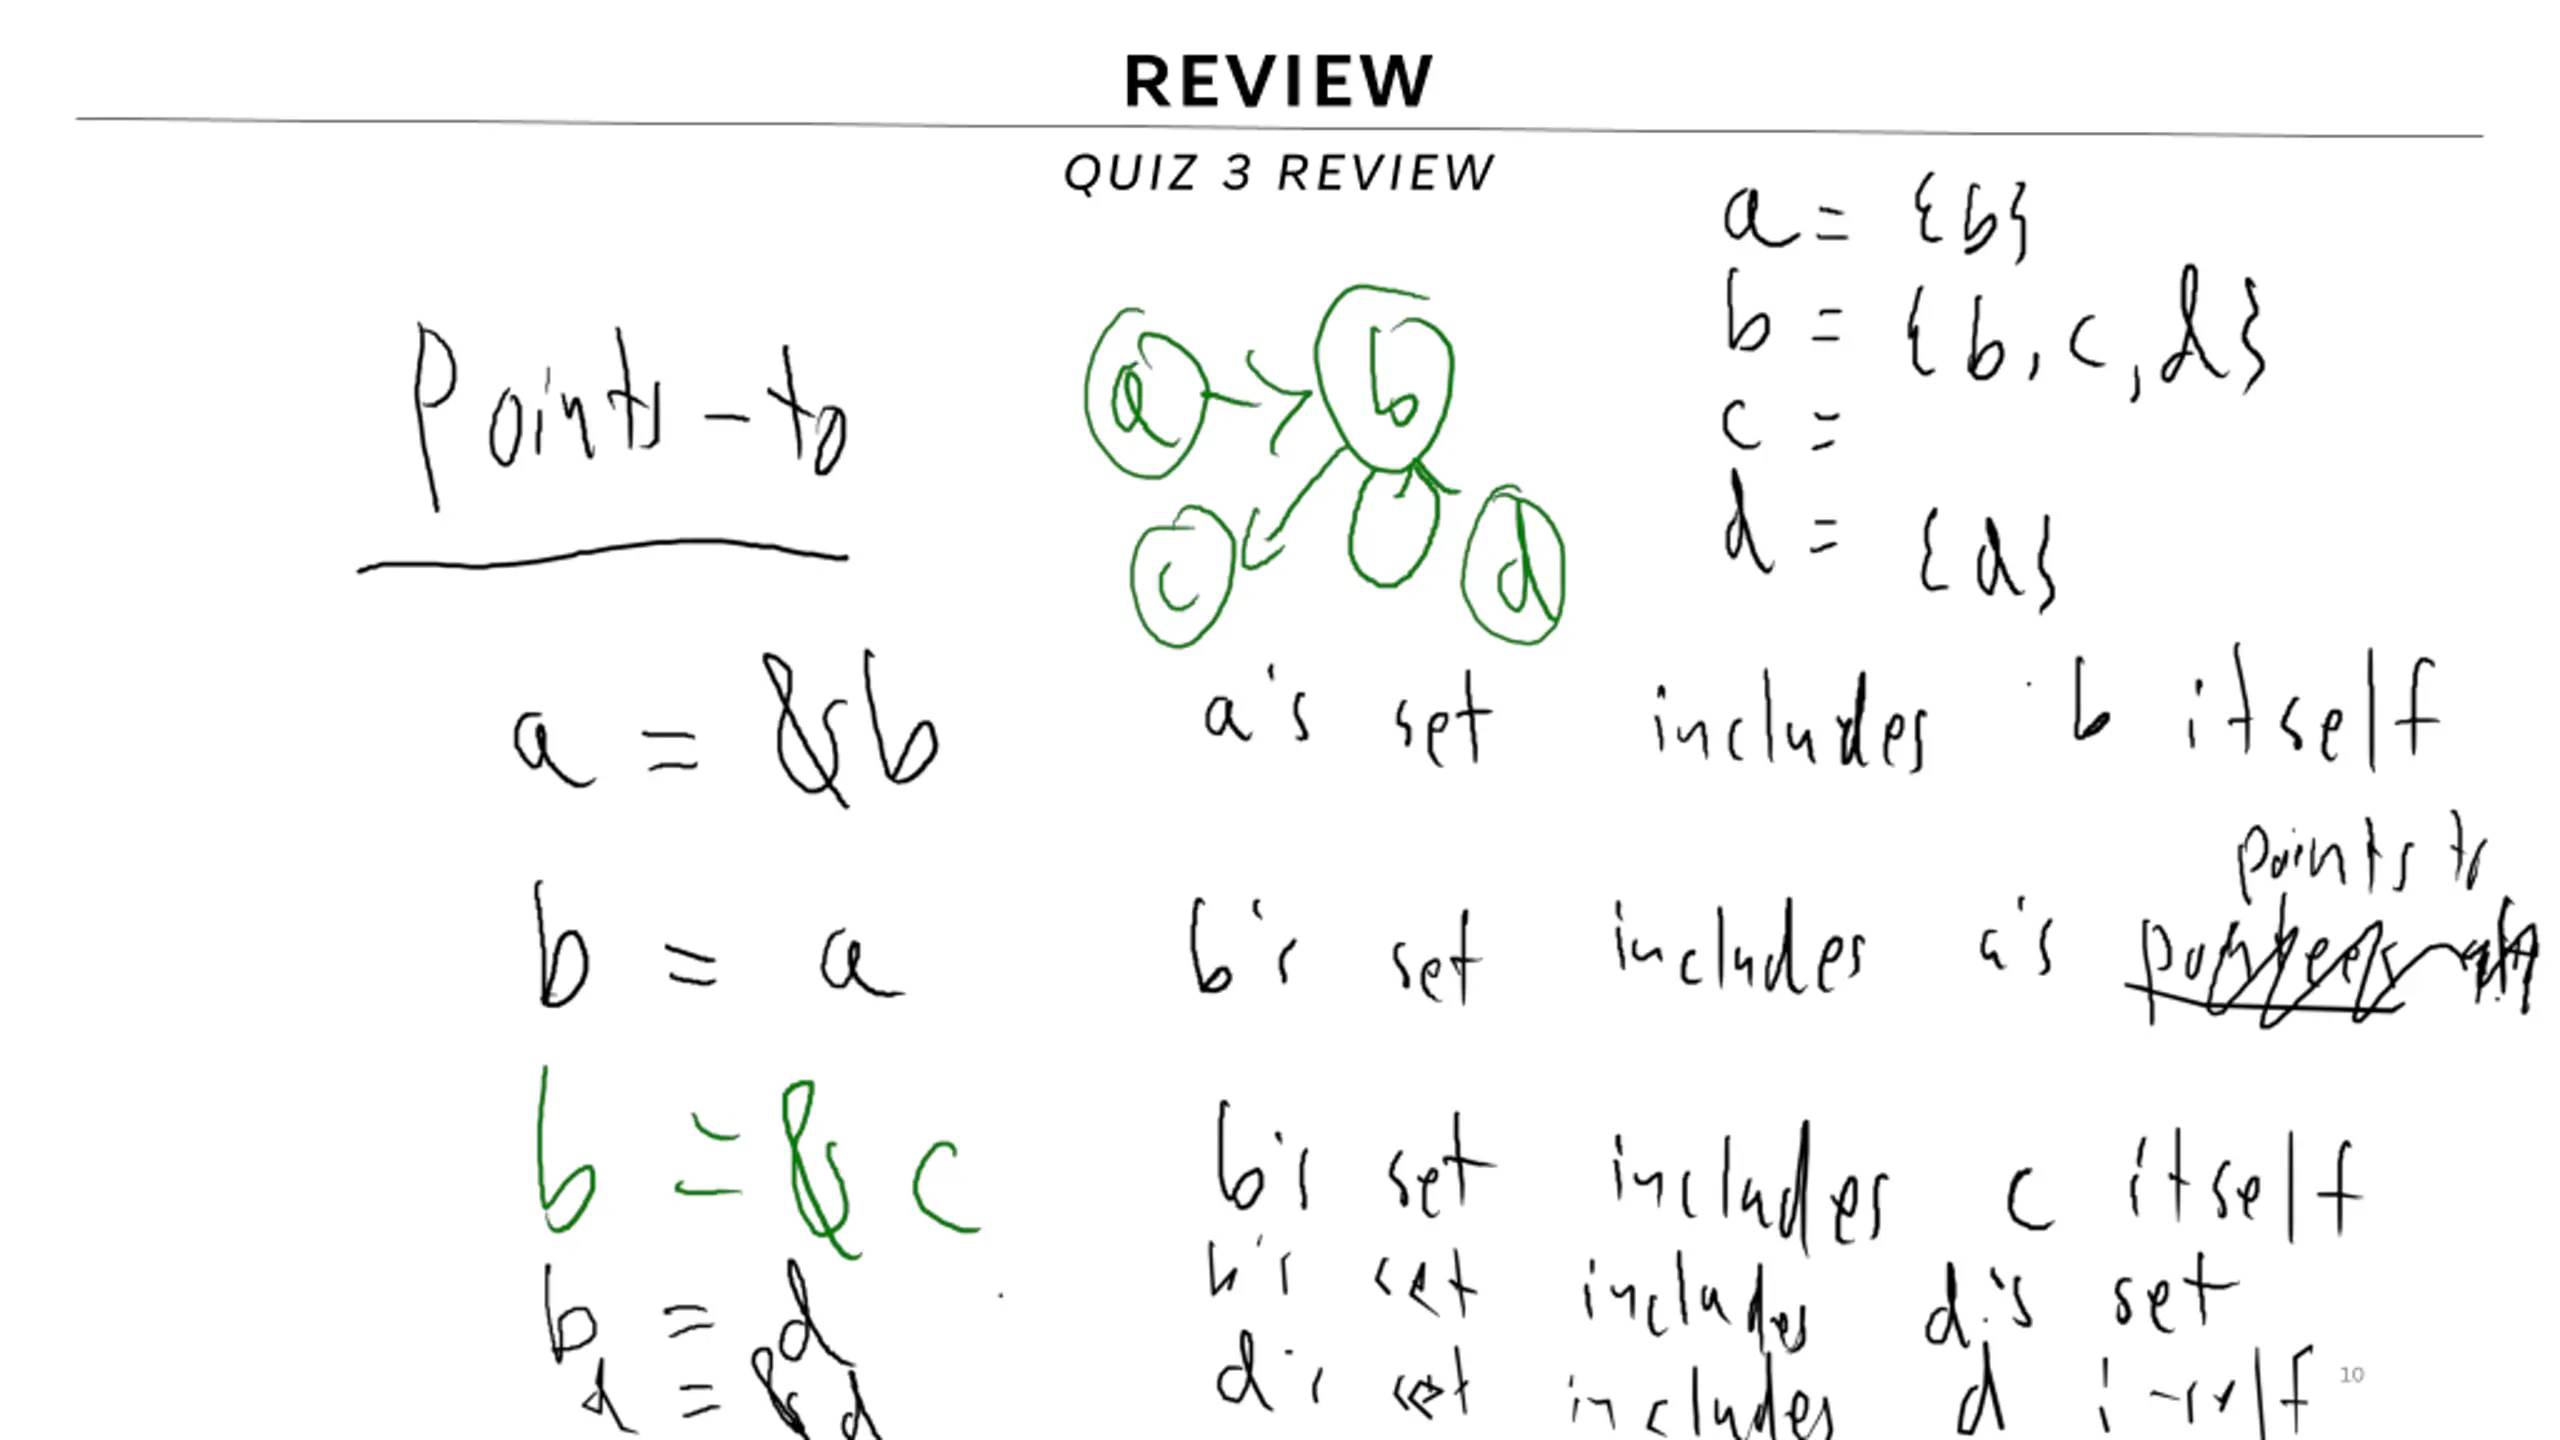 REVIEW
QUIZ 3 REVIEW
a = {b}
b = {b, c, d}
c =
d = {d}
Points-to
a b
c d
a = &b a's set includes b itself
points to
b = a b's set includes a's
b = &c b's set includes c itself
b = d b's set includes d's set
d = &d d's set includes d itself
10